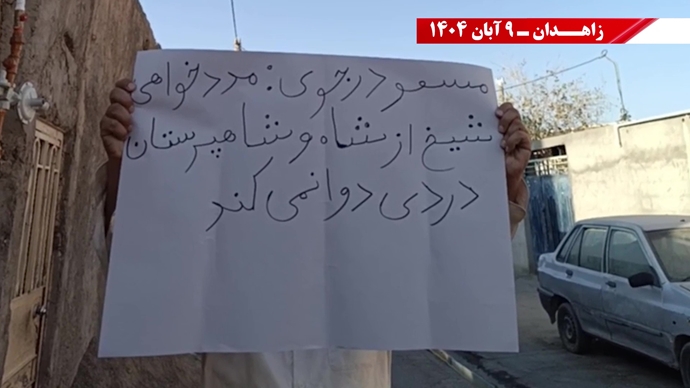 زاهـــدان ـ ۹ آبان ۱۴۰۴
مسعود رجوی: مدد خواهی
شیخ از شاه و شاهپرستان
دردی دوا نمی کند